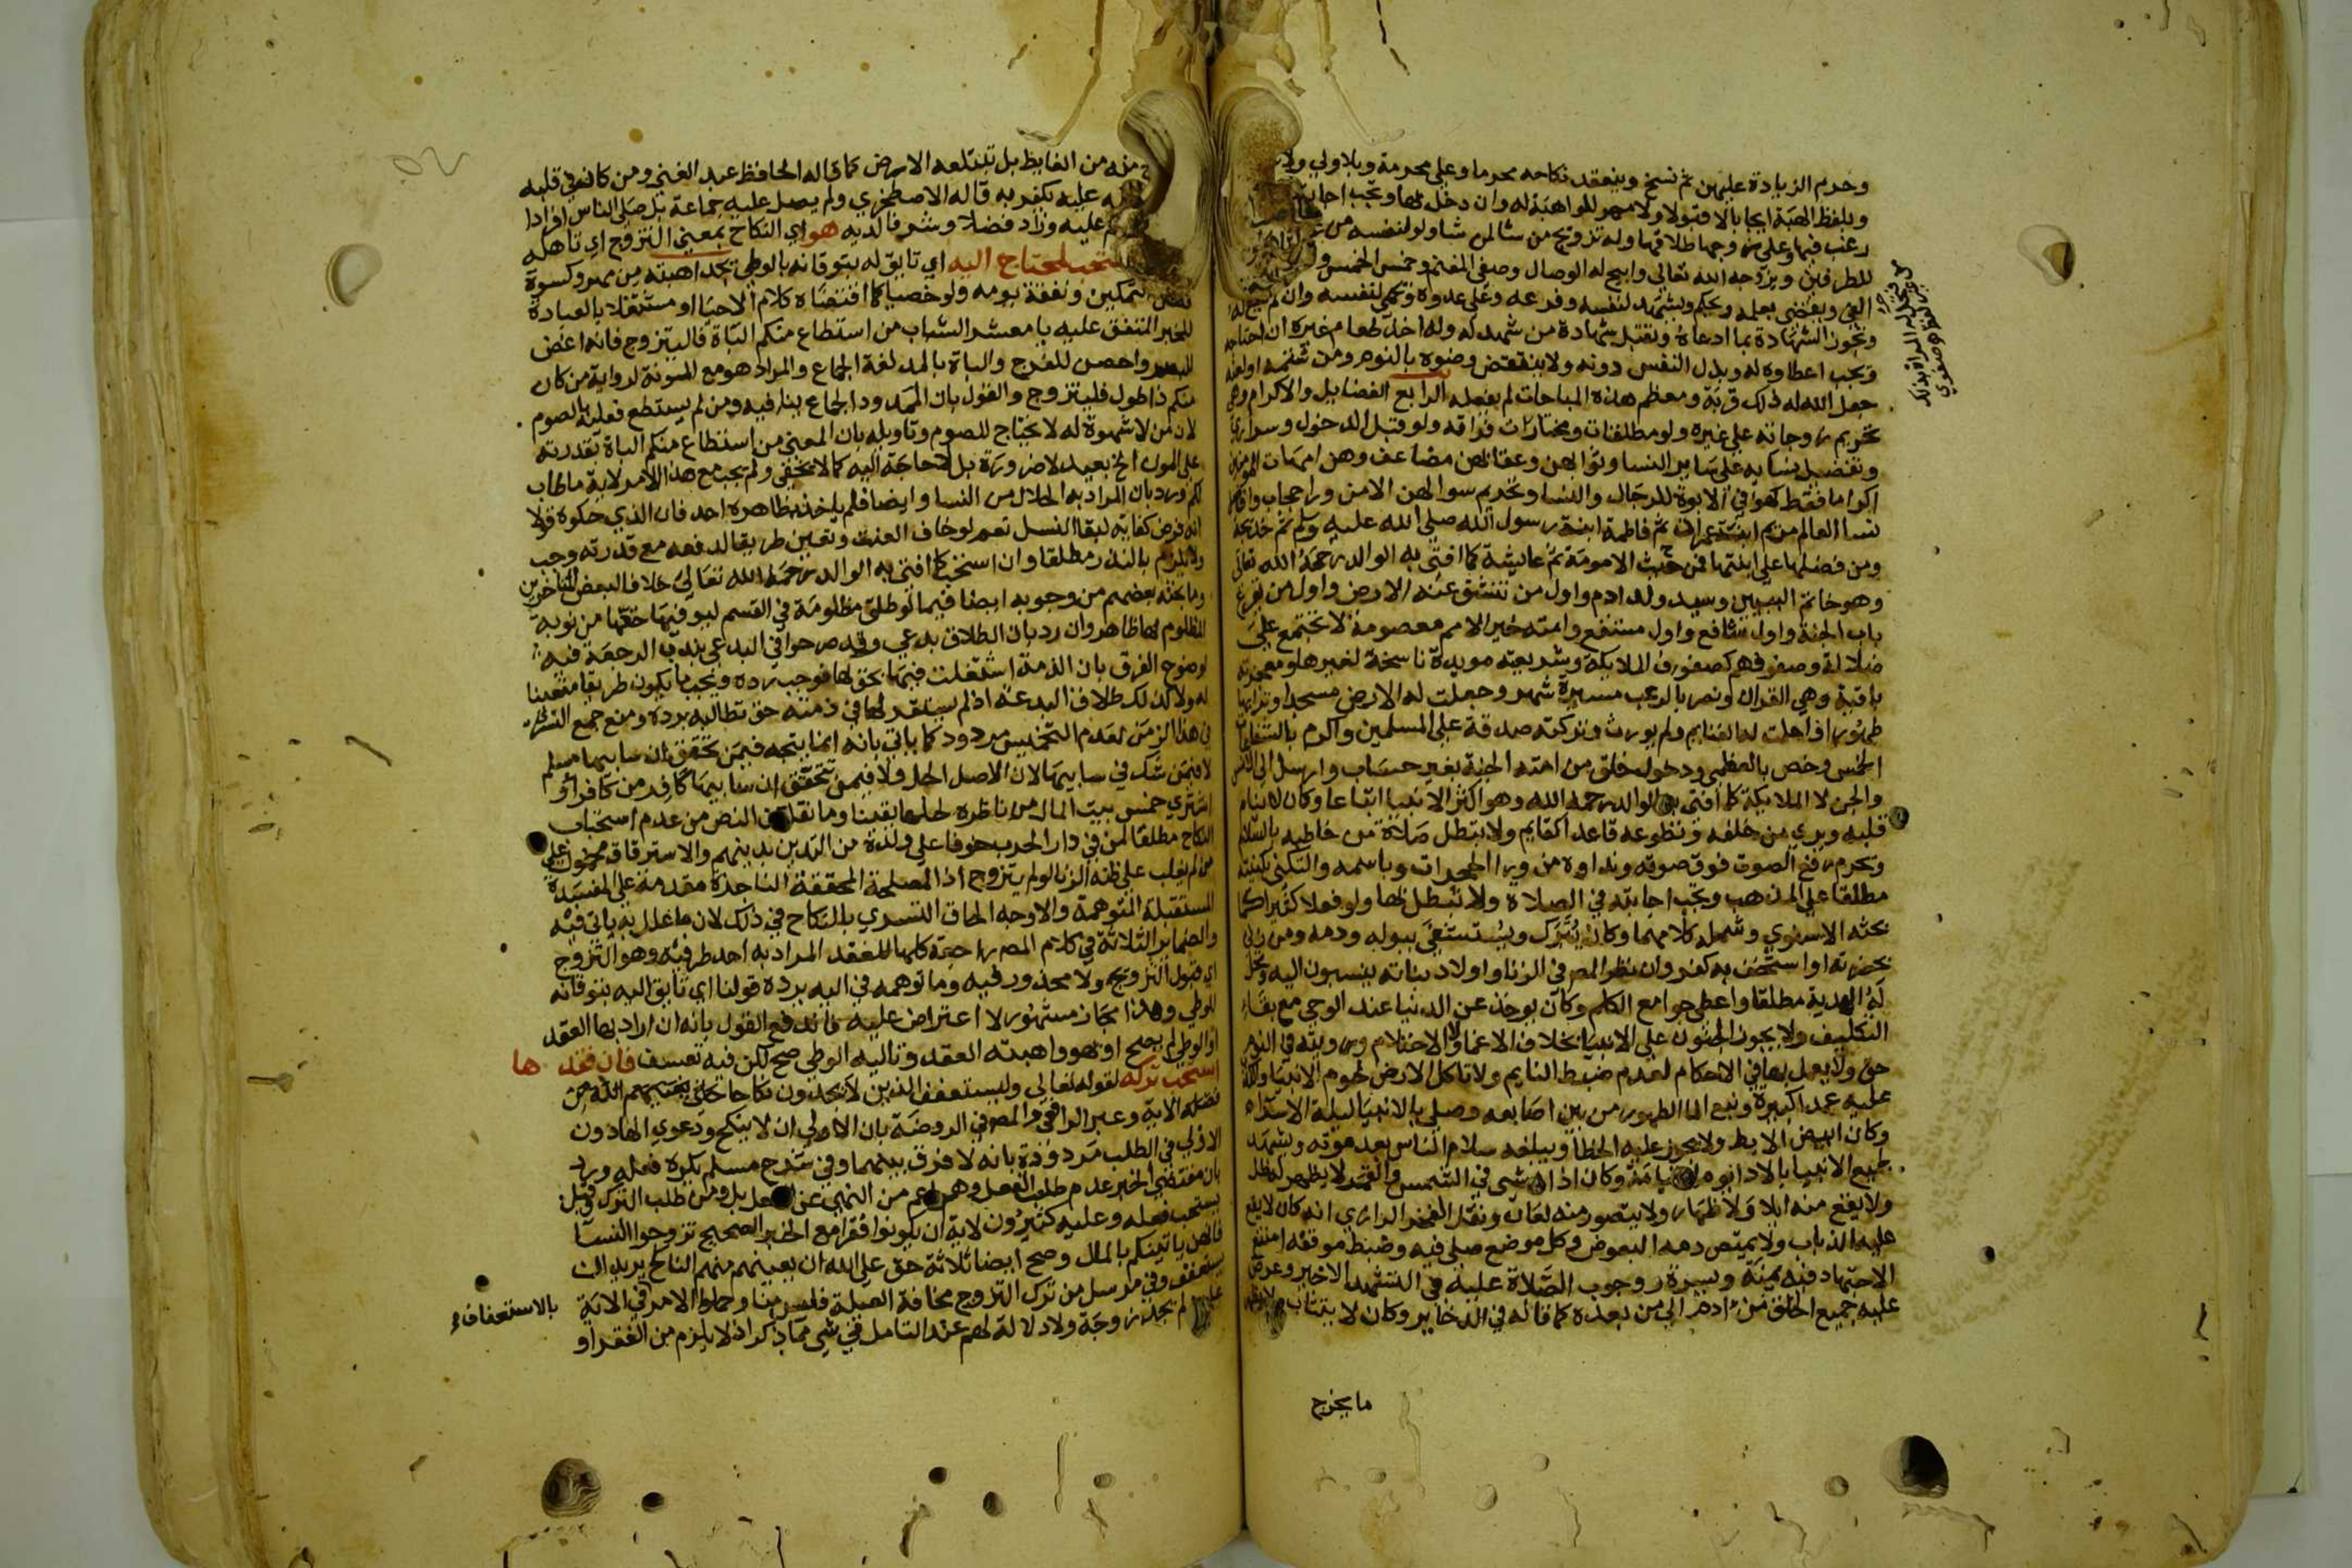 وحرم الزيادة عليهن ثم نسخ وينعقد نكاحه محرما وعلى محرمة وبلا ولي ولا
وبلفظ الهبة ايجابا لا قبولا ولا مهر للواهبة له وان دخل بها وتجب اجابته
رغب فيها وعلى زوجها طلاقها وله تزويج من شا لمن شا ولو لنفسه من غير
للطرفين ويزوجه الله تعالى وابيح له الوصال وصفي المغنم وخمس الخمس و
الفي ويقضي بعلمه ويحكم ويشهد لنفسه وفرعه وعلى عدوه ويحمي لنفسه وان لم
وتجوز الشهادة بما ادعاه وتقبل شهادة من شهد له وله اخذ طعام غيره ان احتاجه
ويجب اعطاوه له وبذل النفس دونه ولا ينتقض وضوه بالنوم ومن شتمه او لعنه
جعل الله له ذلك قربة ومعظم هذه المباحات لم يفعله الرابع الفضايل والاكرام وهي
تحريم زوجاته على غيره ولو مطلقات ومختارات فراقه ولو قبل الدخول وسراريه
وتفضيل نسايه على ساير النسا وثوابهن وعقابهن مضاعف وهن امهات المومنين
اكراما فقط كهو في الابوة للرجال والنسا وتحريم سوالهن الا من ورا حجاب وافضل
نسا العالم مريم ابنت عمران ثم فاطمة ابنة رسول الله صلى الله عليه وسلم ثم خديجة
ومن فضلها على ابنتها فمن حيث الامومة ثم عايشة كما افتى به الوالد رحمه الله تعالى
وهو خاتم النبيين وسيد ولد ادم واول من تنشق عنه الارض واول من يقرع
باب الجنة واول شافع واول مشفع وامته خير الامم معصومة لا تجتمع على
ضلالة وصفوفهم كصفوف الملايكة وشريعته مويدة ناسخة لغيرها ومعجزته
باقية وهي القران ونصر بالرعب مسيرة شهر وجعلت له الارض مسجدا وترابها
طهورا واحلت له الغنايم ولم يورث وتركته صدقة على المسلمين واكرم بالشفاعات
الخمس وخص بالعظمى ودخول خلق من امته الجنة بغير حساب وارسل الى الانس
والجن لا الملايكة كما افتى به الوالد رحمه الله وهو اكثر الانبيا اتباعا وكان لا ينام
قلبه ويرى من خلفه وتطوعه قاعدا كقايم ولا تبطل صلاة من خاطبه بالسلام
ويحرم رفع الصوت فوق صوته ونداوه من ورا الحجرات وباسمه والتكني بكنيته
مطلقا على المذهب وتجب اجابته في الصلاة ولا تبطل بها ولو فعلا كثيرا كما
بحثه الاسنوي وشمله كلامهما وكان يتبرك ويستشفى ببوله ودمه ومن زنى
بحضرته او استخف به كفر وان نظر المص في الزنا واولاد بناته ينسبون اليه وتحل
له الهدية مطلقا واعطي جوامع الكلم وكان يوخذ عن الدنيا عند الوحي مع بقاء
التكليف ولا يجوز الجنون على الانبيا بخلاف الاغما ولا الاحتلام ورويته في النوم
حق ولا يعمل بها في الاحكام لعدم ضبط النايم ولا تاكل الارض لحوم الانبيا والكذب
عليه عمدا كبيرة ونبع الما الطهور من بين اصابعه وصلى بالانبيا ليلة الاسراء
وكان ابيض الابط ولا يجوز عليه الخطا ويبلغه سلام الناس بعد موته ويشهد
لجميع الانبيا بالادا يوم القيامة وكان اذا مشى في الشمس والقمر لا يظهر له ظل
ولا يقع منه ايلا ولا ظهار ولا يتصور منه لعان ونقل الفخر الرازي انه كان لا يقع
عليه الذباب ولا يمتص دمه البعوض وكل موضع صلى فيه وضبط موقفه امتنع
الاجتهاد فيه يمنة ويسرة ووجوب الصلاة عليه في التشهد الاخير وعرض
عليه جميع الخلق من ادم الى من بعده كما قاله في الذخاير وكان لا يتثاب
ما يخرج
منه من الغايظ بل تبتلعه الارض كما قاله الحافظ عبد الغني ومن كان في قلبه
عليه يكفر به قاله الاصطخري ولم يصل عليه جماعة بل صلى الناس افرادا
عليه وزاد فضلا وشرفا لديه هو اي النكاح بمعنى التزوج اي تاهله
مستحب لمحتاج اليه اي تايق له بتوقانه بالوطي تجد اهبته من مهر وكسوة
فصل التمكين ونفقة يومه ولو خصيا كما اقتضاه كلام الاحيا او مشتغلا بالعبادة
للخبر المتفق عليه يا معشر الشباب من استطاع منكم الباة فاليتزوج فانه اغض
للبصر واحصن للفرج والباة بالمد لغة الجماع والمراد هو مع المونة لرواية من كان
منكم ذا طول فليتزوج والقول بان المرد ود الجماع ينافيه ومن لم يستطع فعليه بالصوم
لان من لا شهوة له لا يحتاج للصوم وتاويله بان المعنى من استطاع منكم الباة بقدرته
على المون الخ بعيد لا ضرورة بل لا حاجة اليه كما لا يخفى ولم يجب مع هذا الامر لاية ما طاب
لكم ورد بان المراد به الحلال من النسا وايضا فلم ياخذ بظاهره احد فان الذي حكوه قولا
انه فرض كفاية لبقا النسل نعم لو خاف العنت وتعين طريقا لدفعه مع قدرته وجب
ولا يلزم بالنذر مطلقا وان استحب كما افتى به الوالد رحمه الله تعالى خلافا لبعض المتاخرين
وما بحثه بعضهم من وجوبه ايضا فيما لو طلق مظلومة في القسم ليوفيها حقها من نوبة
المظلوم لها ظاهر وان رد بان الطلاق بدعي وقد صرحوا في البدعي بندب الرجعة فيه
لوضوح الفرق بان الذمة اشتغلت فيها بحق لها فوجب رده ويجب ما يكون طريقا متعينا
له ولا كذلك طلاق البدعة اذ لم يستقر لها في ذمته حق تطالبه برده ومنع جمع التسري
في هذا الزمن لعدم التخميس مردود كما ياتي بانه انما يتجه فيمن تحقق ان سابيها مسلم
لا فيمن شك في سابيها لان الاصل الحل ولا فيمن تحقق ان سابيها كافر من كافر او
اشترى خمس بيت المال من ناظره لحلها يقينا وما نقل عن النص من عدم استحباب
النكاح مطلقا لمن في دار الحرب خوفا على ولده من التدين بدينهم والاسترقاق محمول على
من لم يغلب على ظنه الزنا لو لم يتزوج اذ المصلحة المحققة الناجزة مقدمة على المفسدة
المستقبلة المتوهمة والاوجه الحاق التسري بالنكاح في ذلك لان ما علل به ياتي فيه
والضماير الثلاثة في كلام المص راجعة كلها للعقد المراد به احد طرفيه وهو التزوج
اي قبول التزويج ولا محذور فيه وما توهمه في اليه يرده قولنا اي تايق اليه بتوقانه
للوطي وهذا مجاز مشهور لا اعتراض عليه فاندفع القول بانه ان اراد بها العقد
او الوطي لم يصح او بهو واهبته العقد وتاليه الوطي صح لكن فيه تعسف فان فقدها
استحب تركه لقوله تعالى وليستعفف الذين لا يجدون نكاحا حتى يغنيهم الله من
فضله الاية وعبر الرافعي والمص في الروضة بان الاولى ان لا ينكح ودعوى انها دون
الاولى في الطلب مردودة بانه لا فرق بينهما وفي شرح مسلم يكره فعله ورد
بان مقتضى الخبر عدم طلب الفعل وهو اعم من النهي عن الفعل بل ومن طلب الترك وقيل
يستحب فعله وعليه كثيرون لاية ان يكونوا فقرا مع الخبر الصحيح تزوجوا النسا
فانهن ياتينكم بالمال وصح ايضا ثلاثة حق على الله ان يعينهم منهم الناكح يريد ان
يستعفف وفي مرسل من ترك التزوج مخافة العيلة فليس منا وحملوا الامر في الاية
بالاستعفاف
على من لم يجد زوجة ولا دلالة لهم عند التامل في شي مما ذكر اذ لا يلزم من الفقر او